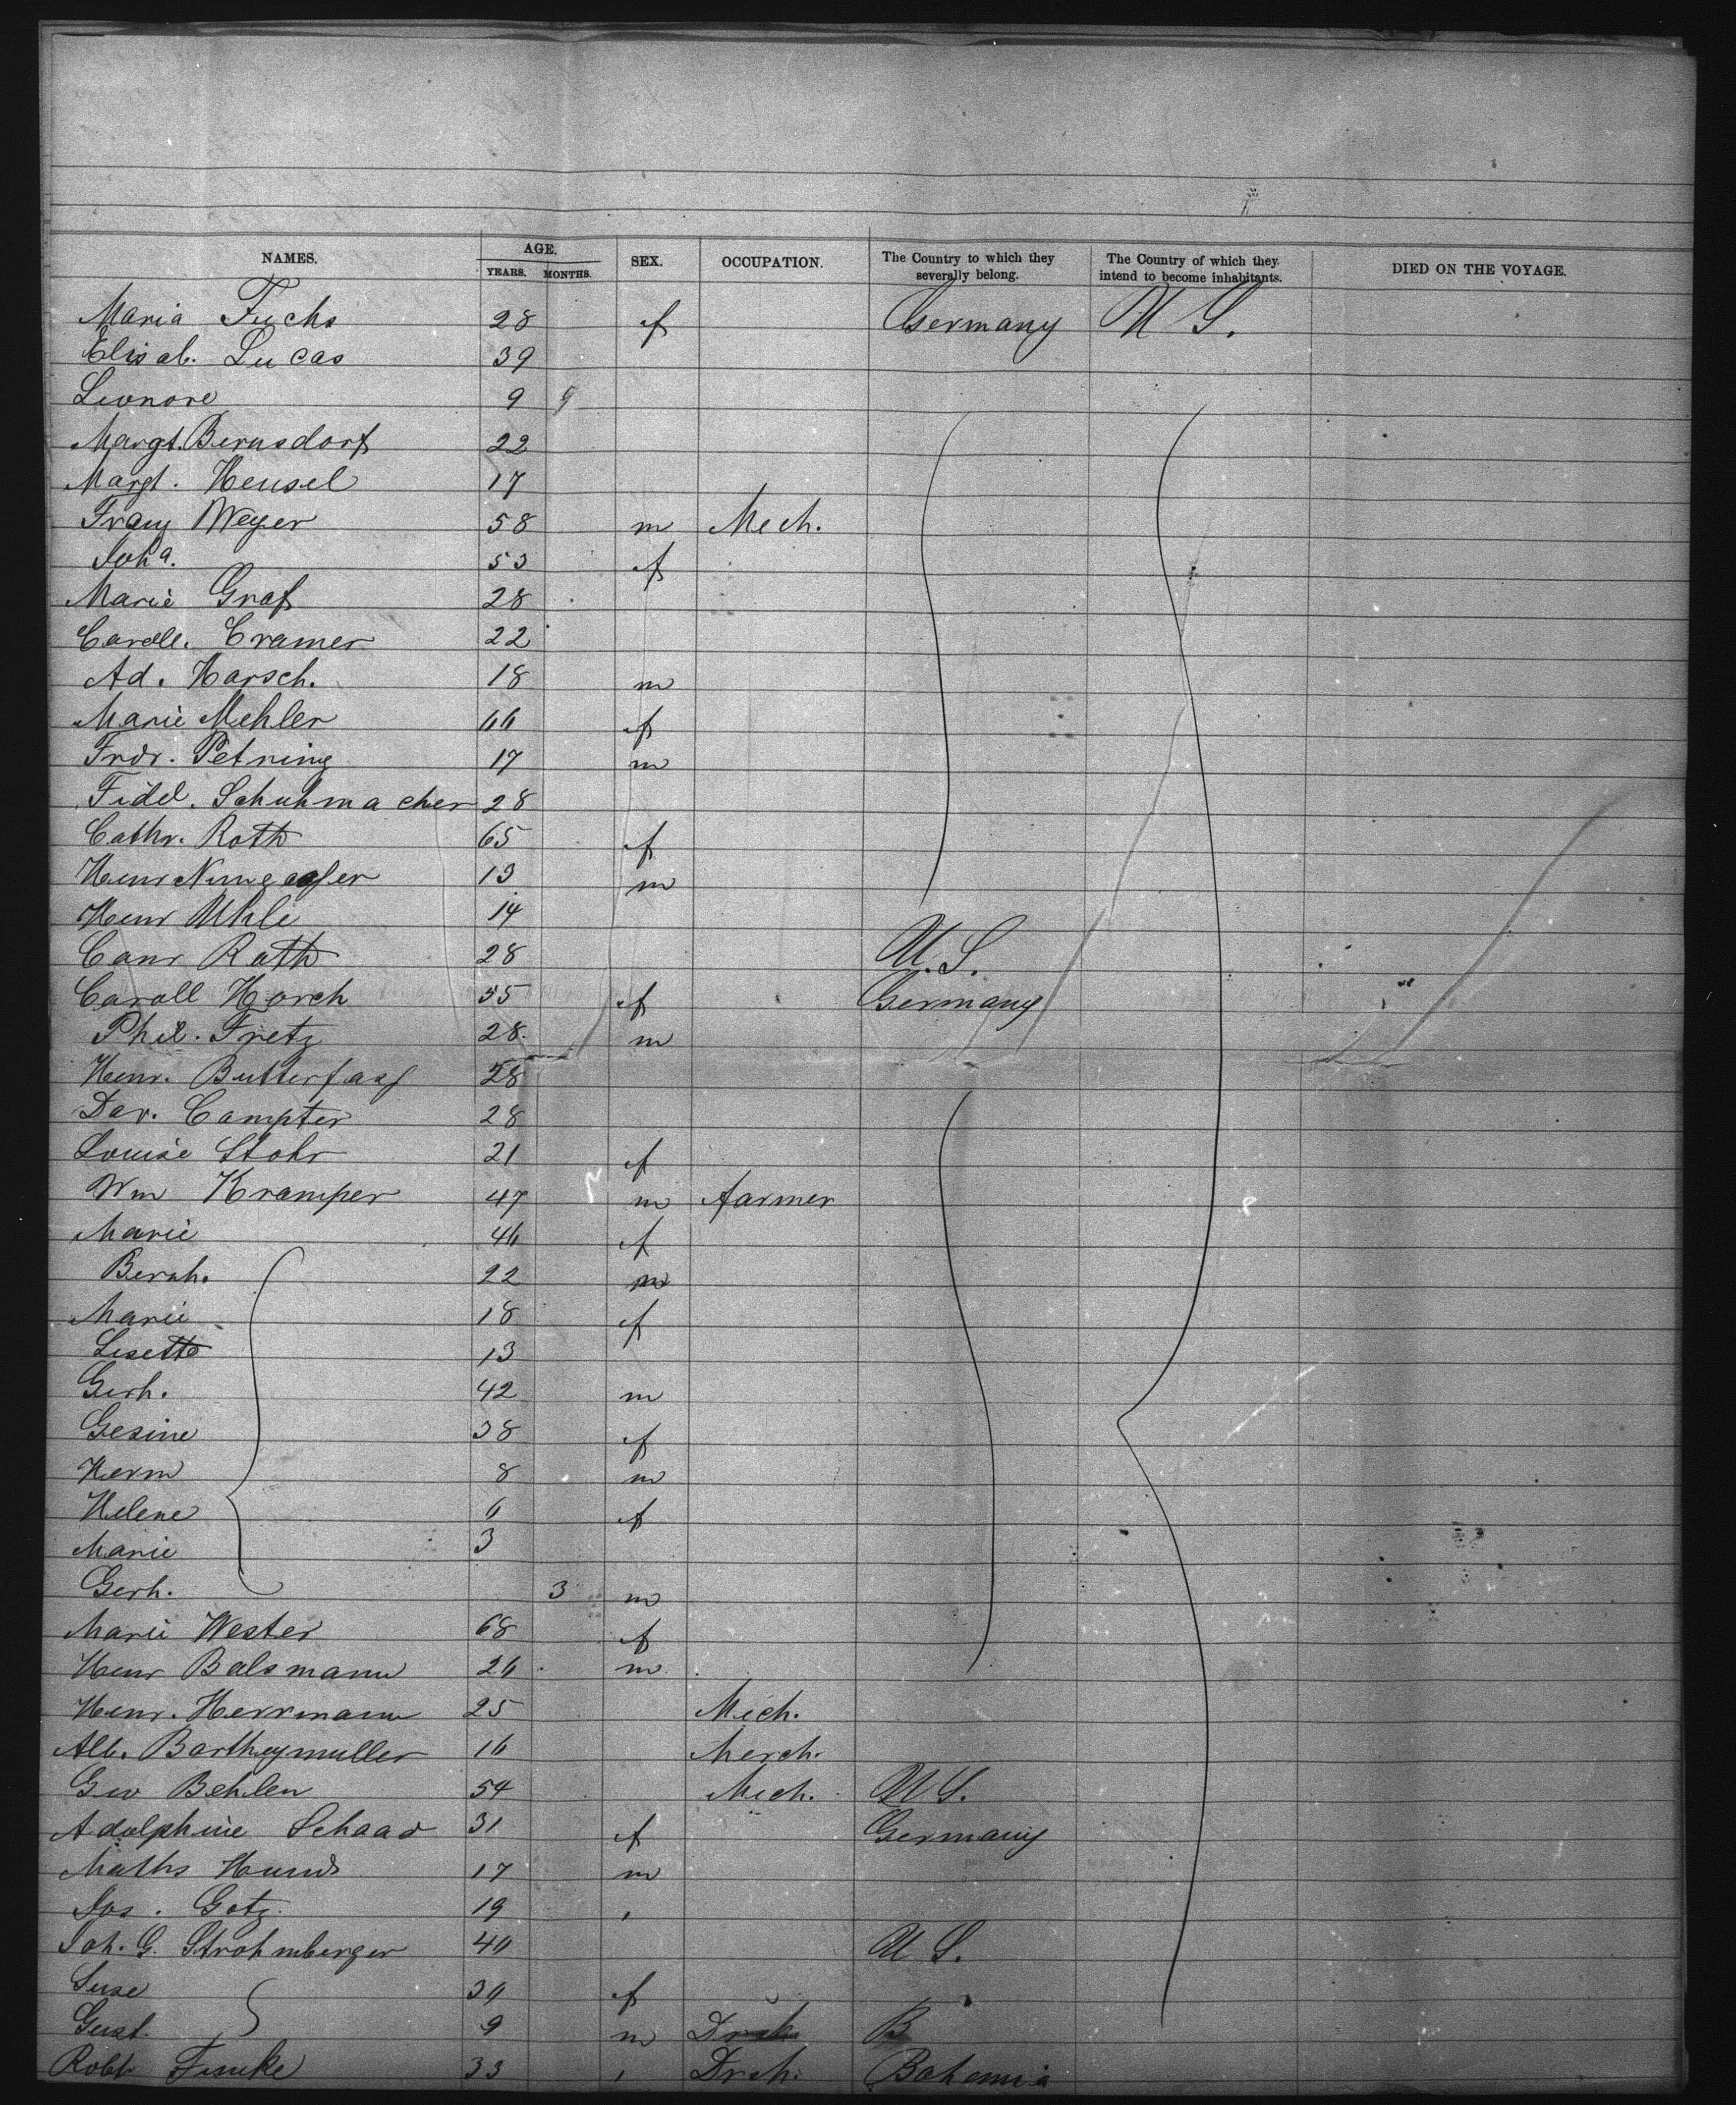 NAMES. AGE. YEARS. MONTHS. SEX. OCCUPATION. The Country to which they severally belong. The Country of which they intend to become inhabitants. DIED ON THE VOYAGE.
Maria Fuchs 28 f Germany U S.
Elisab. Lucas 39
Leonore 9 9
Margt. Bernsdorf 22
Margt. Heusel 17
Franz Weyer 58 m Mech.
Joha. 53 f
Marie Graf 28
Caroll. Cramer 22
Ad. Harsch. 18 m
Marie Mehler 66 f
Frdr. Petring 17 m
Fidel. Schuhmacher 28
Cathr. Roth 65 f
Henr 13 m
Henr Uhle 14
Conr Rath 28 U.S.
Caroll Horch 55 f Germany
Phil. Fretz 28. m
Henr. Butterfass 28
Dav. Campter 28
Louise Stohr 21 f
Wm Kramper 47 m farmer
Marie 46 f
Bernh. 22 m
Marie 18 f
Lisette 13
Gerh. 42 m
Gesine 38 f
Herm 8 m
Helene 6 f
Marie 3
Gerh. 3 m
Marie Wester 68 f
Henr Balsmann 26 m
Henr. Herrmann 25 Mech.
Alb. Bartheymuller 16 Merch.
Geo Behlen 54 Mech. U S.
Adolphine Schaad 31 f Germany
Maths 17 m
Jos. Gotz 19 "
Joh. G. Strohmberger 40 U S.
Suse 30 f
Gust. 9 m B
Robt Funke 33 " Drch. Bohemia